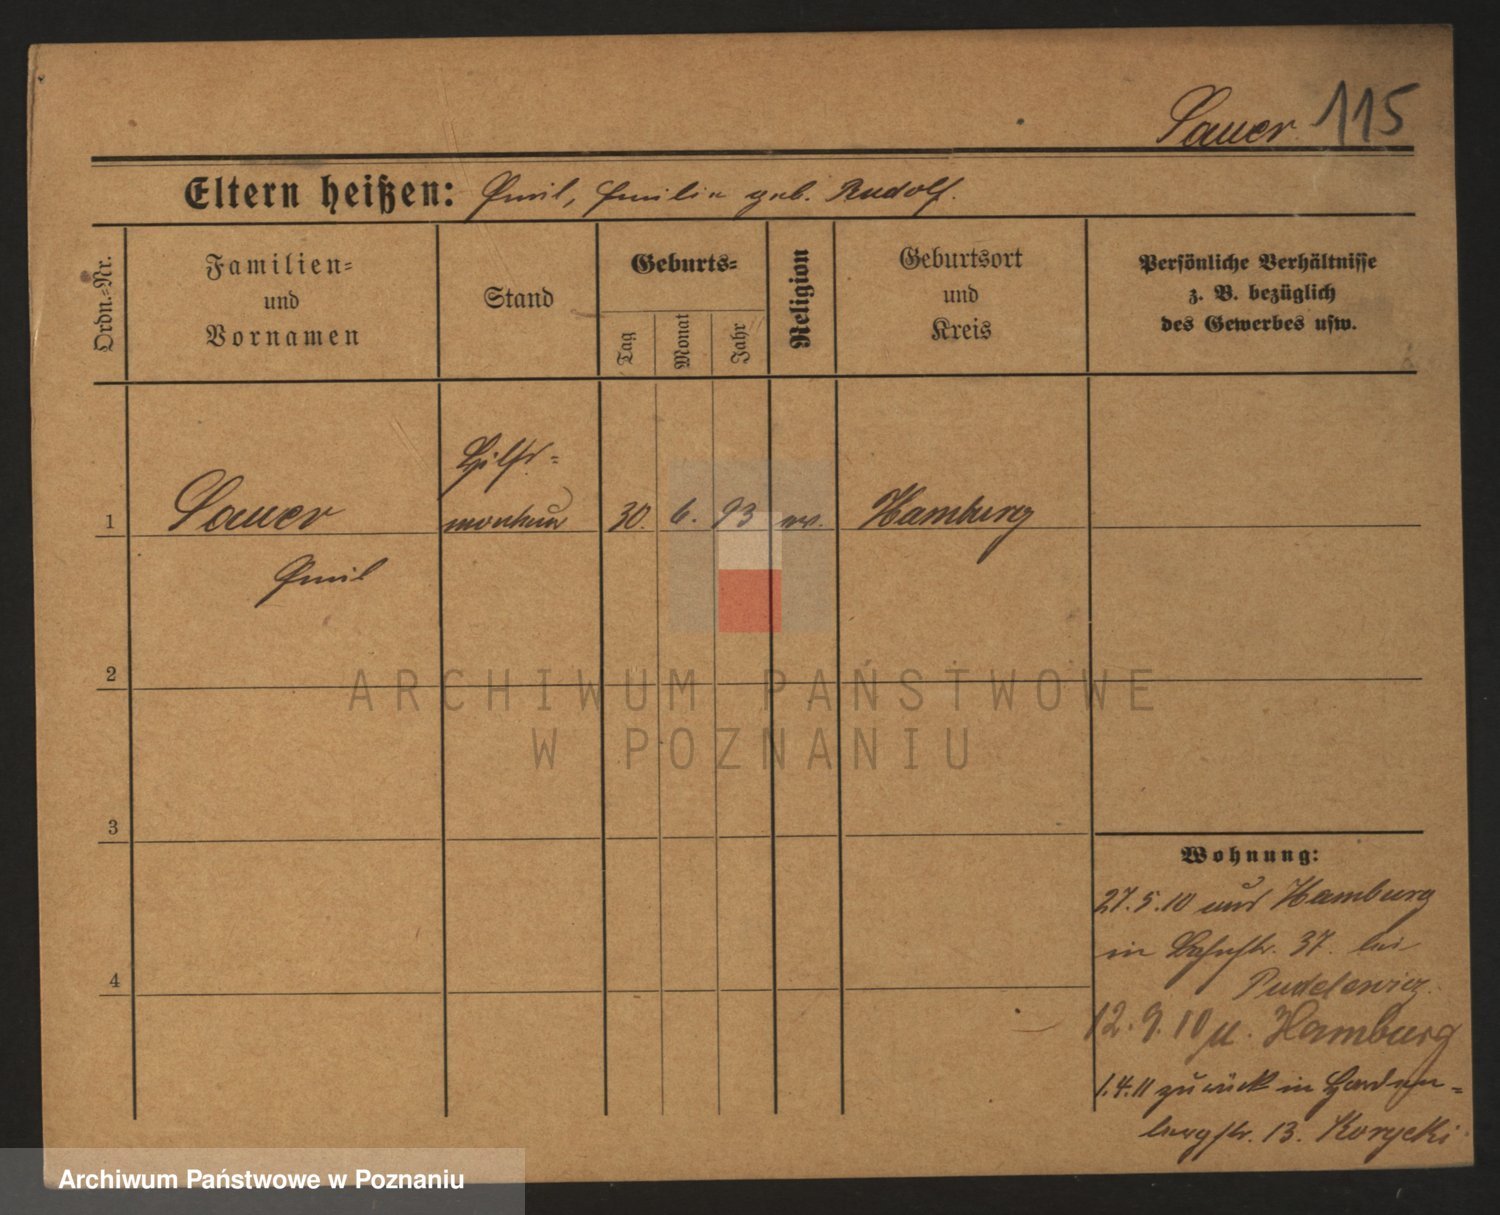 Sauer 115
Eltern heißen: Emil, Emilie geb. Rudolf.
Ordn.-Nr.
Familien-
und
Vornamen
Stand
Geburts-
Tag
Monat
Jahr
Religion
Geburtsort
und
Kreis
Persönliche Verhältnisse
z. B. bezüglich
des Gewerbes usw.
Hilfs-
1 Sauer monteur 30. 6. 93 ev. Hamburg
Emil
2
ARCHIWUM PAŃSTWOWE
W POZNANIU
3
Wohnung:
27.5.10 aus Hamburg
in Bahnstr. 37. bei
4
12.9.10 n. Hamburg
1.4.11 zurück in Harden-
bergstr. 13. Korycki
Archiwum Państwowe w Poznaniu